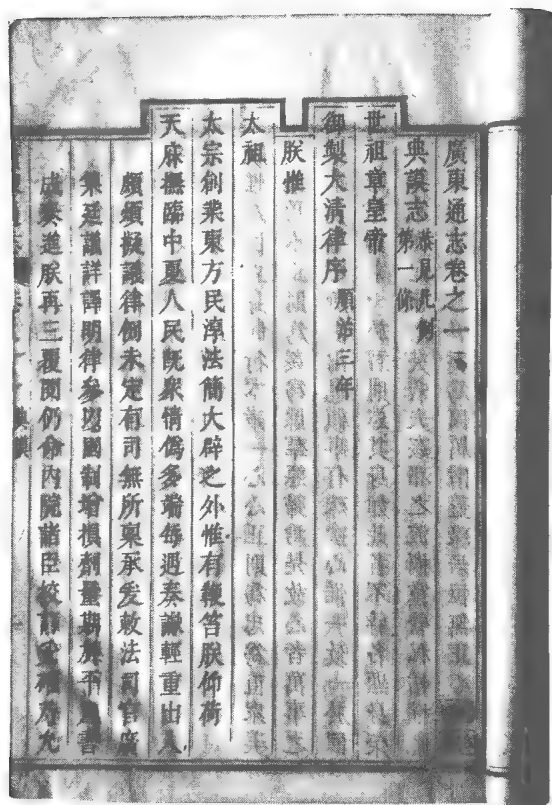 廣東通志卷之一
典謨志 恭見凡例第一條
世祖章皇帝
御製大清律序 順治三年
朕惟
太祖
太宗創業東方民淳法簡大辟之外惟有鞭笞朕仰荷
天庥撫臨中夏人民既衆情偽多端每遇奏讞輕重出入
頗煩擬議律例未定有司無所稟承爰敕法司官廣
集廷議詳譯明律參以國制增損劑量期於平允書
成奏進朕再三覆閱仍命內院諸臣校訂妥確乃允